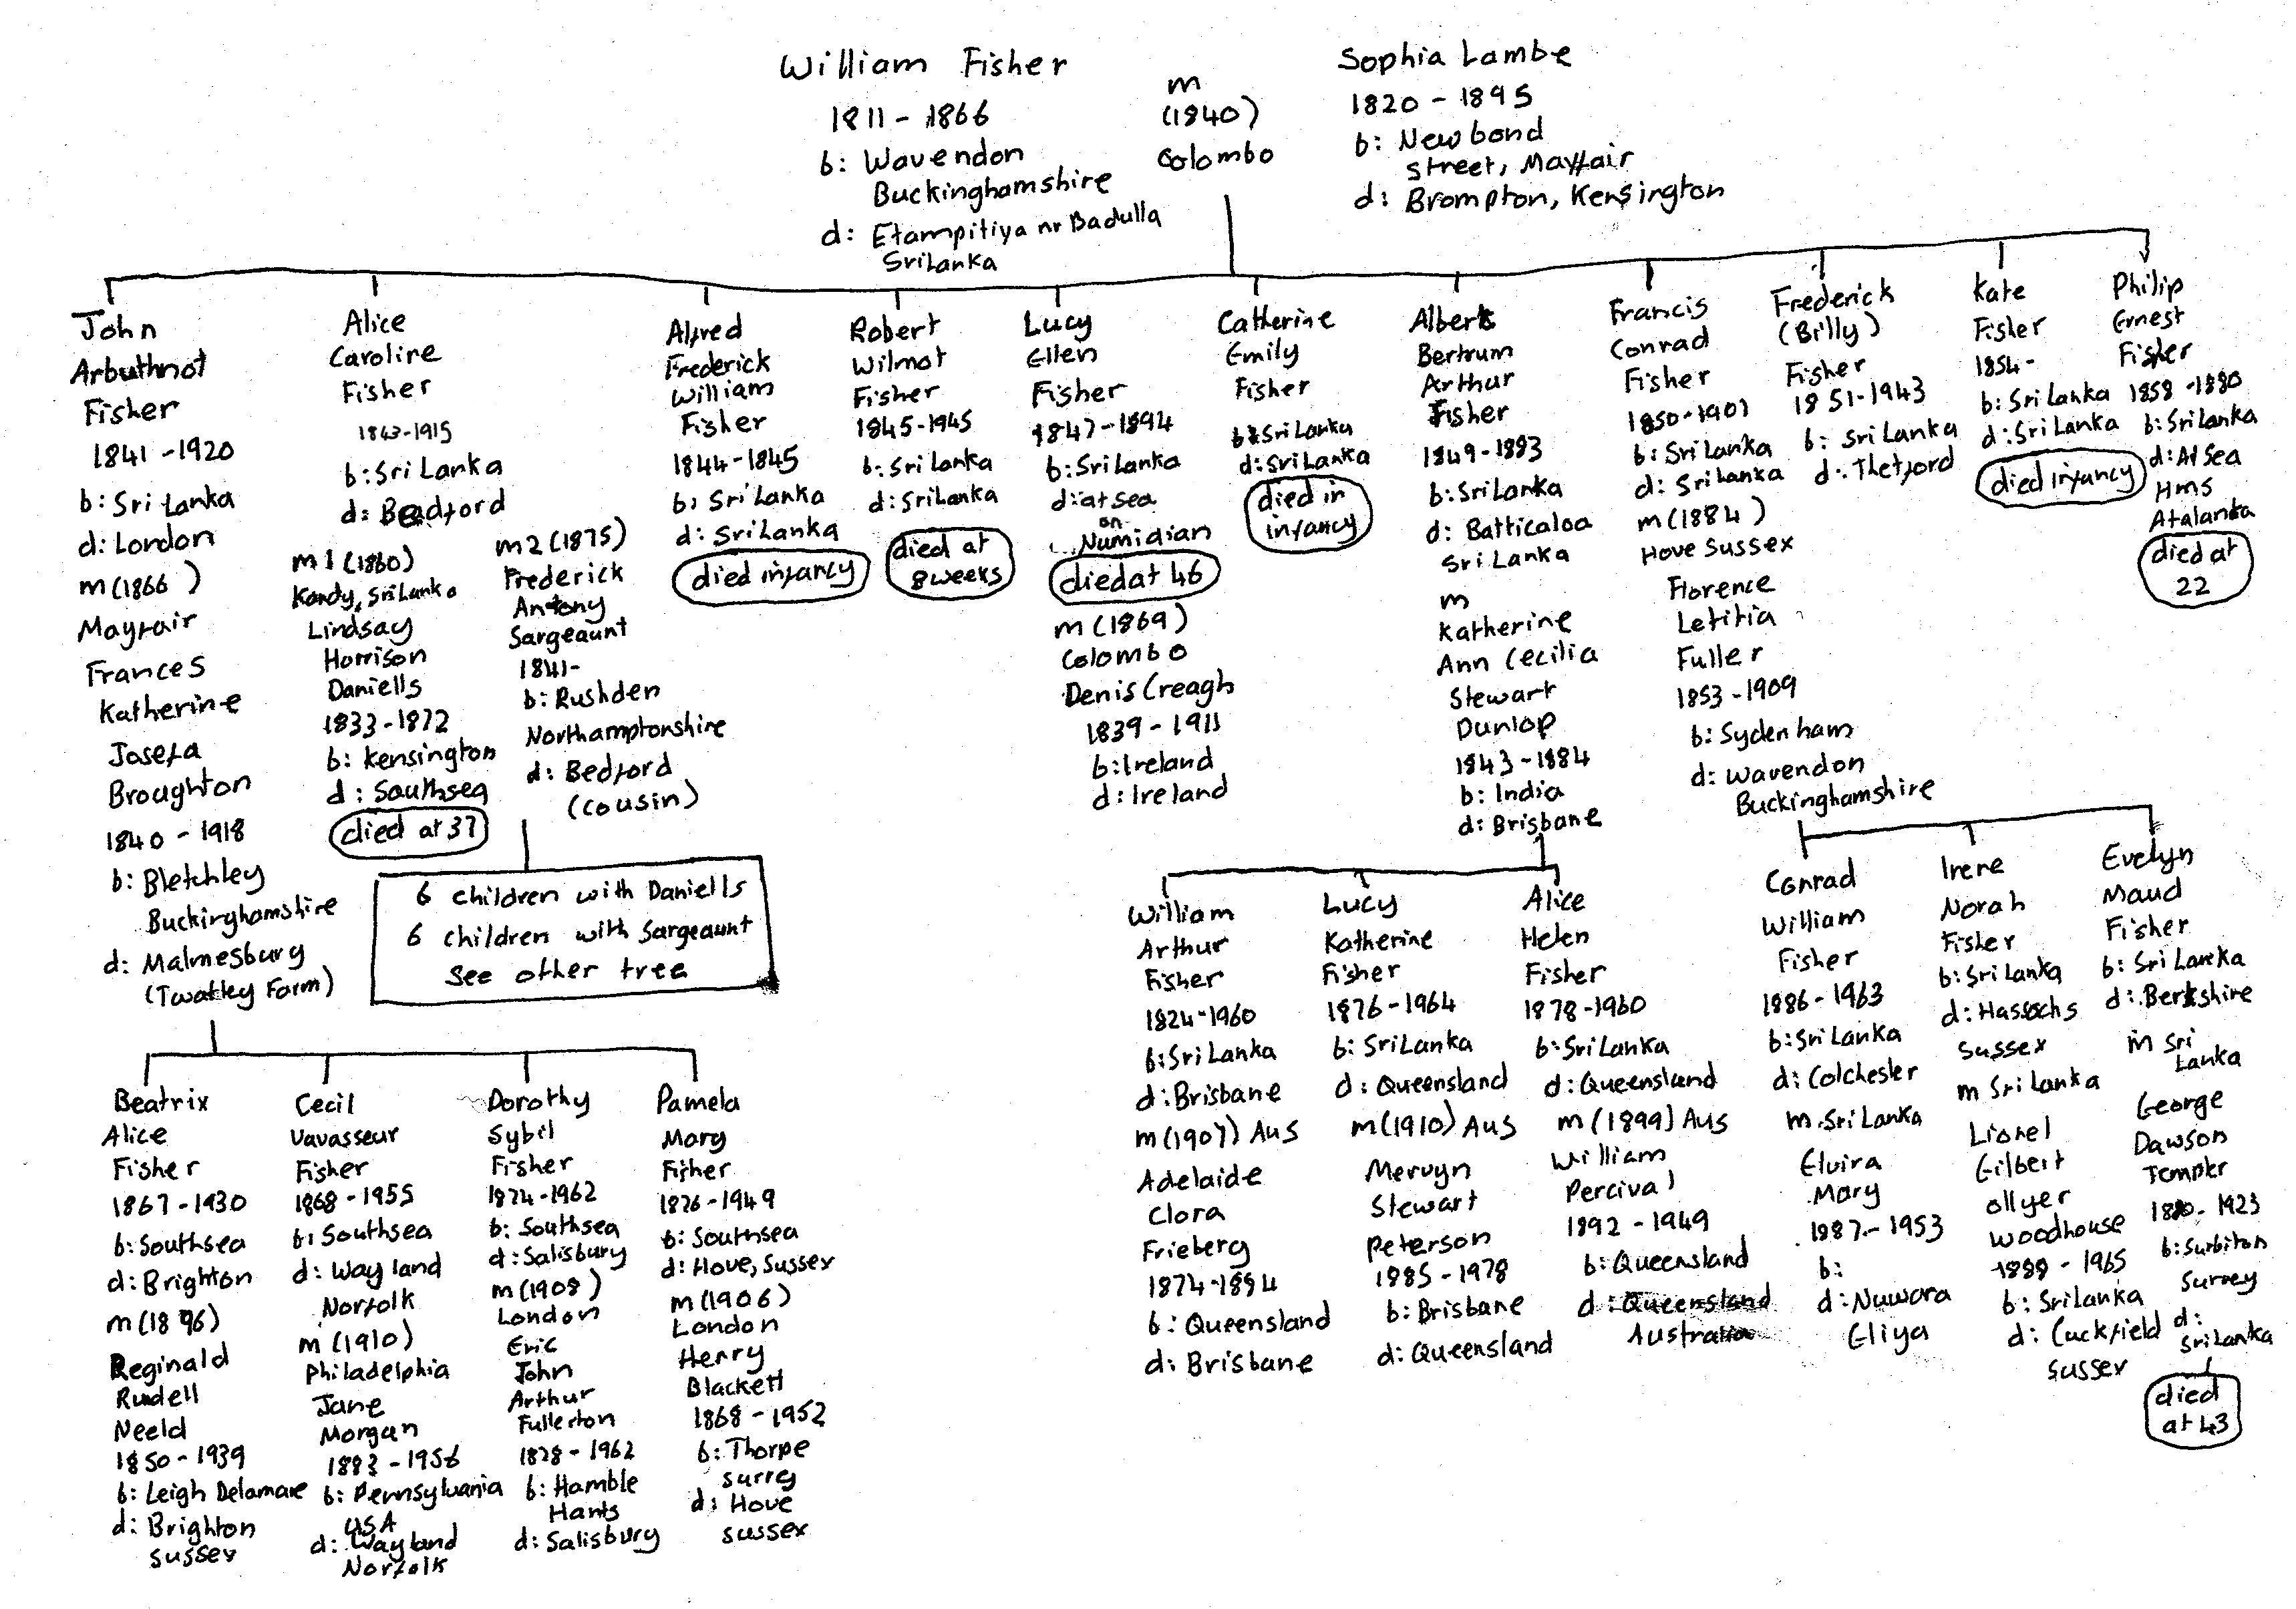 William Fisher
1811 - 1866
b: Wavendon
Buckinghamshire
d: Etampitiya nr Badulla
Sri Lanka
m
(1840)
Colombo
Sophia Lambe
1820 - 1895
b: New bond
street, Mayfair
d: Brompton, Kensington
John
Arbuthnot
Fisher
1841 - 1920
b: Sri Lanka
d: London
m (1866 )
Mayfair
Frances
Katherine
Josefa
Broughton
1840 - 1918
b: Bletchley
Buckinghamshire
d: Malmesbury
(Twatley Farm)
Alice
Caroline
Fisher
1843-1915
b: Sri Lanka
d: Bedford
m1 (1860)
Kandy, Sri Lanka
Lindsay
Harrison
Daniells
1833-1872
b: Kensington
d: Southsea
died at 37
m2 (1875)
Frederick
Antony
Sargeaunt
1841-
b: Rushden
Northamptonshire
d: Bedford
(cousin)
6 children with Daniells
6 children with Sargeaunt
See other tree
Alfred
Frederick
William
Fisher
1844-1845
b: Sri Lanka
d: Sri Lanka
died infancy
Robert
Wilmot
Fisher
1845-1945
b: Sri Lanka
d: Sri Lanka
died at
8 weeks
Lucy
Ellen
Fisher
1847-1894
b: Sri Lanka
d: at sea
on
Numidian
died at 46
m (1869)
Colombo
Denis Creagh
1839 - 1911
b: Ireland
d: Ireland
Catherine
Emily
Fisher
b: Sri Lanka
d: Sri Lanka
died in
infancy
Albert
Bertrum
Arthur
Fisher
1849-1883
b: Sri Lanka
d: Batticaloa
Sri Lanka
m
Katherine
Ann Cecilia
Stewart
Dunlop
1843-1884
b: India
d: Brisbane
Francis
Conrad
Fisher
1850-1901
b: Sri Lanka
d: Sri Lanka
m (1884)
Hove Sussex
Florence
Letitia
Fuller
1853-1909
b: Sydenham
d: Wavendon
Buckinghamshire
Frederick
(Billy)
Fisher
1851-1943
b: Sri Lanka
d: Thetford
Kate
Fisher
1854-
b: Sri Lanka
d: Sri Lanka
died infancy
Philip
Ernest
Fisher
1858-1880
b: Sri Lanka
d: At Sea
HMS
Atalanta
died at
22
Beatrix
Alice
Fisher
1867-1930
b: Southsea
d: Brighton
m (1896)
Reginald
Rudell
Neeld
1850-1939
b: Leigh Delamare
d: Brighton
Sussex
Cecil
Vavasseur
Fisher
1868-1955
b: Southsea
d: Wayland
Norfolk
m (1910)
Philadelphia
Jane
Morgan
1883-1956
b: Pennsylvania
USA
d: Wayland
Norfolk
Dorothy
Sybil
Fisher
1874-1962
b: Southsea
d: Salisbury
m (1908)
London
Eric
John
Arthur
Fullerton
1878-1962
b: Hamble
Hants
d: Salisbury
Pamela
Mary
Fisher
1876-1949
b: Southsea
d: Hove, Sussex
m (1906)
London
Henry
Blackett
1868-1952
b: Thorpe
Surrey
d: Hove
Sussex
William
Arthur
Fisher
1824-1960
b: Sri Lanka
d: Brisbane
m (1907) Aus
Adelaide
Clora
Frieberg
1874-1894
b: Queensland
d: Brisbane
Lucy
Katherine
Fisher
1876-1964
b: Sri Lanka
d: Queensland
m (1910) Aus
Mervyn
Stewart
Peterson
1885-1978
b: Brisbane
d: Queensland
Alice
Helen
Fisher
1878-1960
b: Sri Lanka
d: Queensland
m (1899) Aus
William
Percival
1892-1949
b: Queensland
d: Queensland
Australia
Conrad
William
Fisher
1886-1963
b: Sri Lanka
d: Colchester
m. Sri Lanka
Elvira
Mary
1887-1953
b:
d: Nuwara
Eliya
Irene
Norah
Fisher
b: Sri Lanka
d: Hassochs
Sussex
m Sri Lanka
Lionel
Gilbert
Ollyer
Woodhouse
1888 - 1965
b: Sri Lanka
d: Cuckfield
Sussex
Evelyn
Maud
Fisher
b: Sri Lanka
d: Berkshire
m Sri
Lanka
George
Dawson
Templer
1880-1923
b: Surbiton
Surrey
d:
Sri Lanka
died
at 43